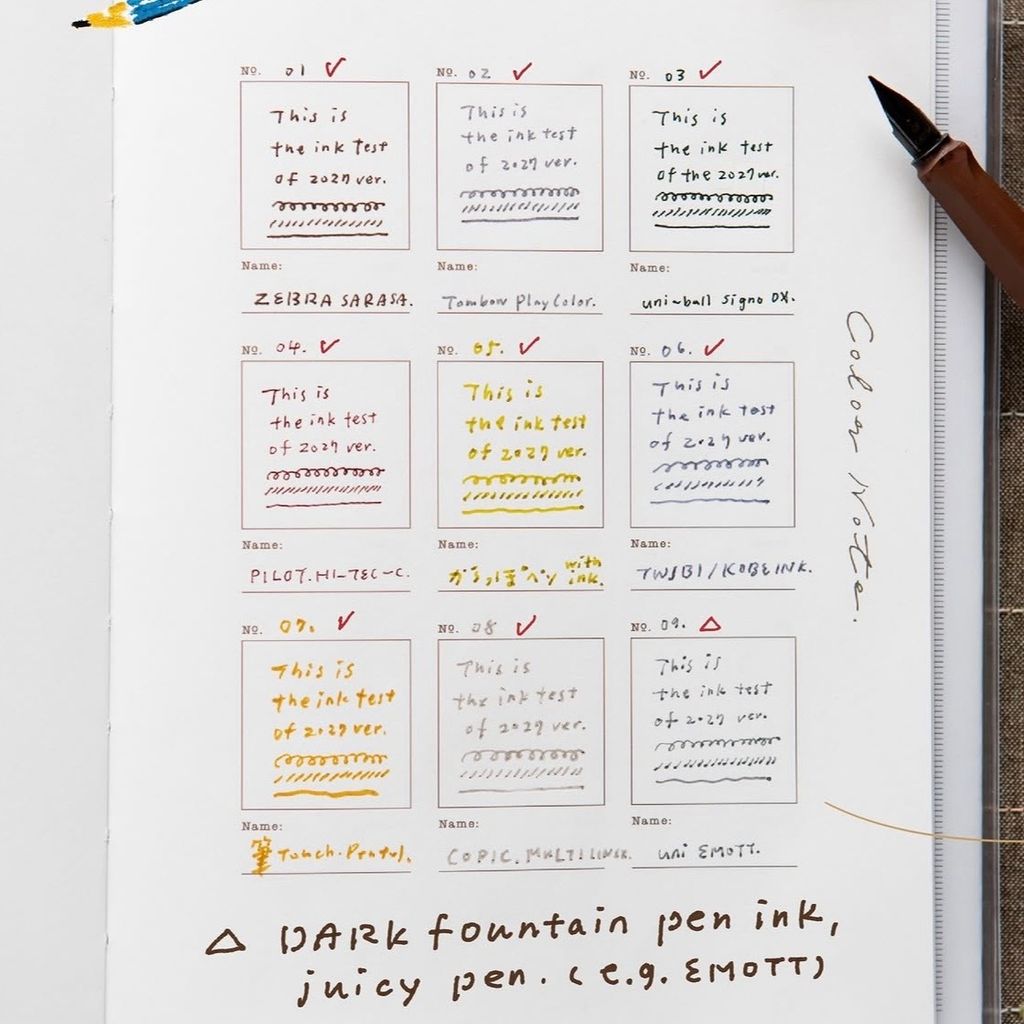 No. 01 ✓
This is
the ink test
of 2027 ver.
Name:
ZEBRA SARASA.
No. 02 ✓
This is
the ink test
of 2027 ver.
Name:
Tombow Play Color.
No. 03 ✓
This is
the ink test
of the 2027 ver.
Name:
uni-ball signo DX.
No. 04. ✓
This is
the ink test
of 2027 ver.
Name:
PILOT. HI-TEC-C.
No. 05. ✓
This is
the ink test
of 2027 ver.
Name:
からっぽペン with
ink.
No. 06. ✓
This is
the ink test
of 2027 ver.
Name:
TWSBI/KOBEINK.
No. 07. ✓
This is
the ink test
of 2027 ver.
Name:
筆 Touch. Pentel.
No. 08 ✓
This is
the ink test
of 2027 ver.
Name:
COPIC. MULTILINER.
No. 09. △
This is
the ink test
of 2027 ver.
Name:
uni EMOTT.
Color Note.
△ DARK fountain pen ink,
juicy pen. (e.g. EMOTT)